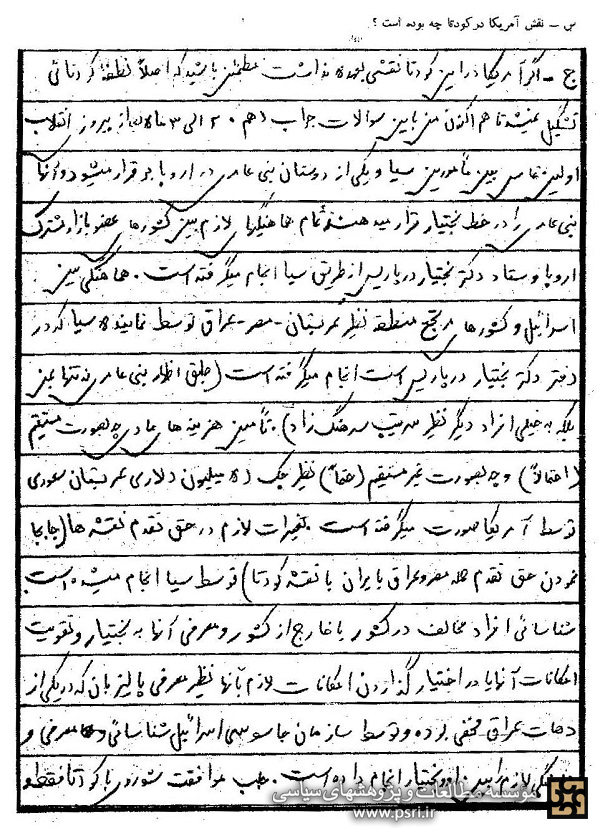 س - نقش آمریکا در کودتا چه بوده است ؟
ج - اگر آمریکا در این کودتا نقشی بعهده نداشت مطمئن باشید که اصلاً نطفه کودتائی
تشکیل نمیشد تا هم اکنون من باین سوالات جواب دهم ۲۰ الی ۳۰ ماه بعد از پیروزی انقلاب
اولین تماس بین مأمورین سیا و یکی از دوستان بنی عامری در اروپا برقرار میشود و آنها
بنی عامری را در خط بختیار قرار میدهند تمام هماهنگیهای لازم بین کشورهای عضو بازار مشترک
اروپا و ستاد دکتر بختیار در پاریس از طریق سیا انجام میگرفته است . هماهنگی بین
اسرائیل و کشورهای مرتجع منطقه نظیر عربستان - مصر - عراق توسط نماینده سیا که در
دفتر دکتر بختیار در پاریس است انجام میگرفته است (طبق اظهار بنی عامری نه تنها بمن
بلکه به خیلی افراد دیگر نظیر سرتیپ سرهنگ زاد) . تأمین هزینه های عادی چه بصورت مستقیم
(احتمالاً) و چه بصورت غیر مستقیم (حتماً) نظیر چک (۵ میلیون دلاری عربستان سعودی
توسط آمریکا صورت میگرفته است تغییرات لازم در حق تقدم نقشه ها (جابجا
نمودن حق تقدم حمله عراق بایران با نقشه کودتا) توسط سیا انجام میشده است
شناسائی افراد مخالف در کشور یا خارج از کشور و معرفی آنها به بختیار و تقویت
امکانات آنها یا در اختیار گذاردن امکانات لازم بآنها نظیر معرفی پالیزبان که در یکی از
دهات عراق مخفی بوده و توسط سازمان جاسوسی اسرائیل شناسائی و معرفی و
لازم را بین او و بختیار انجام داده است . جلب موافقت شوروی با کودتا فقط و
موسسه مطالعات و پژوهشهای سیاسی
www.psri.ir